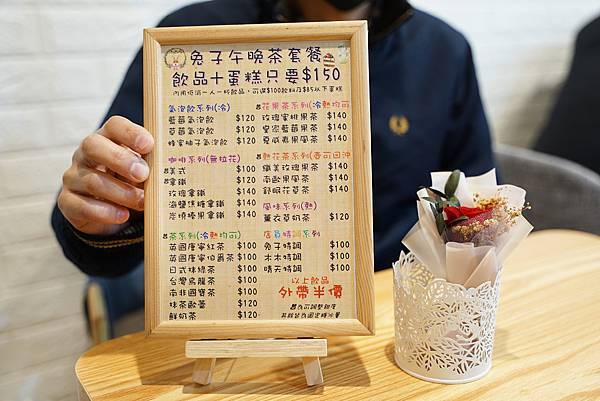 兔子午晚茶套餐
飲品+蛋糕只要$150
內用低消一人一杯飲品，可選$100飲料及$85以下蛋糕
氣泡飲系列(冷)
藍莓氣泡飲 $120
草莓氣泡飲 $120
蜂蜜柚子氣泡飲 $120
咖啡系列(無拉花)
美式 $100
拿鐵 $120
玫瑰拿鐵 $140
海鹽焦糖拿鐵 $140
炭燒榛果拿鐵 $140
茶系列(冷熱均可)
英國唐寧紅茶 $100
英國唐寧伯爵茶 $100
日式抹綠茶 $100
台灣烏龍茶 $100
南非國寶茶 $100
抹茶歐蕾 $120
鮮奶茶 $120
花果茶系列(冷熱均可)
玫瑰蜜桃果茶 $140
皇家藍莓果茶 $140
夏威夷果風茶 $140
熱花茶系列(壺可回沖)
纖美玫瑰茶 $140
南歐果風茶 $140
舒眠花草茶 $140
風味系列(熱)
薰衣草奶茶 $120
店員特調系列
兔子特調 $100
木木特調 $100
晴天特調 $100
以上飲品
外帶半價